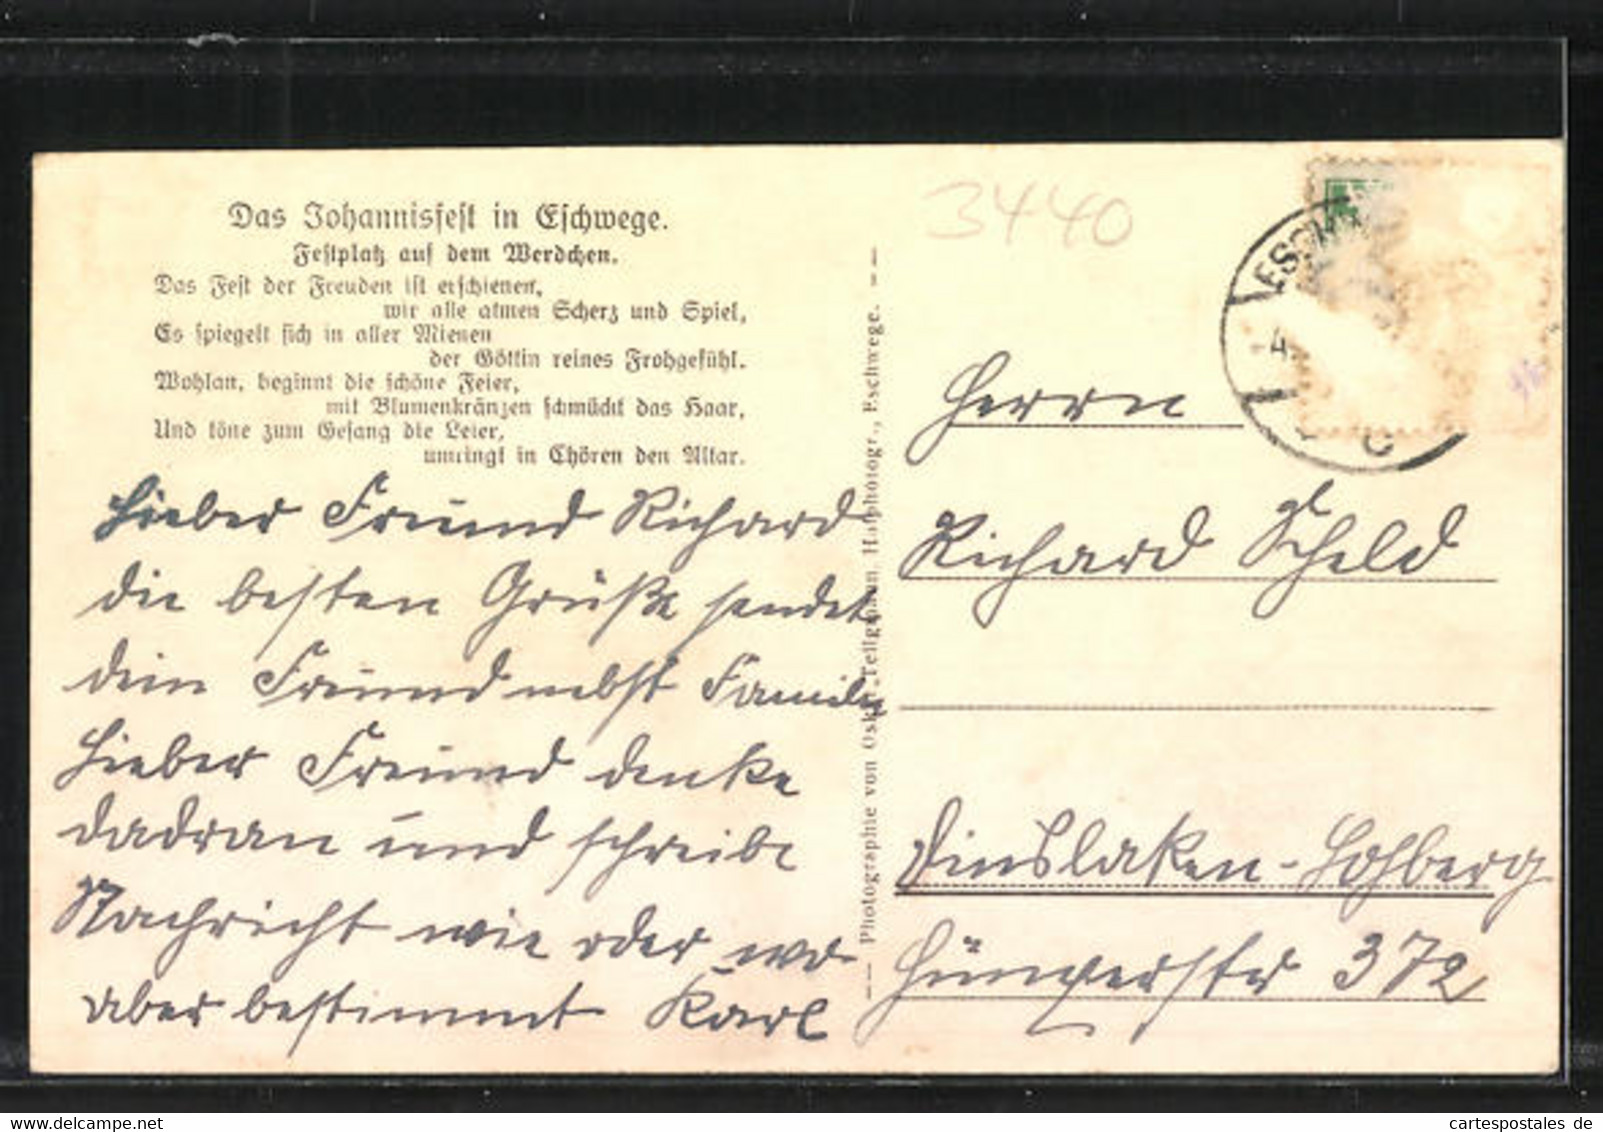 Das Johannisfest in Eschwege.
Festplatz auf dem Werdchen.
Das Fest der Freuden ist erschienen,
wir alle atmen Scherz und Spiel,
Es spiegelt sich in aller Mienen
der Göttin reines Frohgefühl.
Wohlan, beginnt die schöne Feier,
mit Blumenkränzen schmückt das Haar,
Und töne zum Gesang die Leier,
umringt in Chören den Altar.
Lieber Freund Richard
die besten Grüße sendet
dein Freund nebst Familie
Lieber Freund denke
dadran und schreibe
Nachricht wie oder wo
aber bestimmt Karl
Photographie von Oskar Tellgmann, Hofphotogr., Eschwege.
3440
ESCHW
4.
C
Herrn
Richard Scheld
Dinslaken-Lohberg
Hüngerstr 372